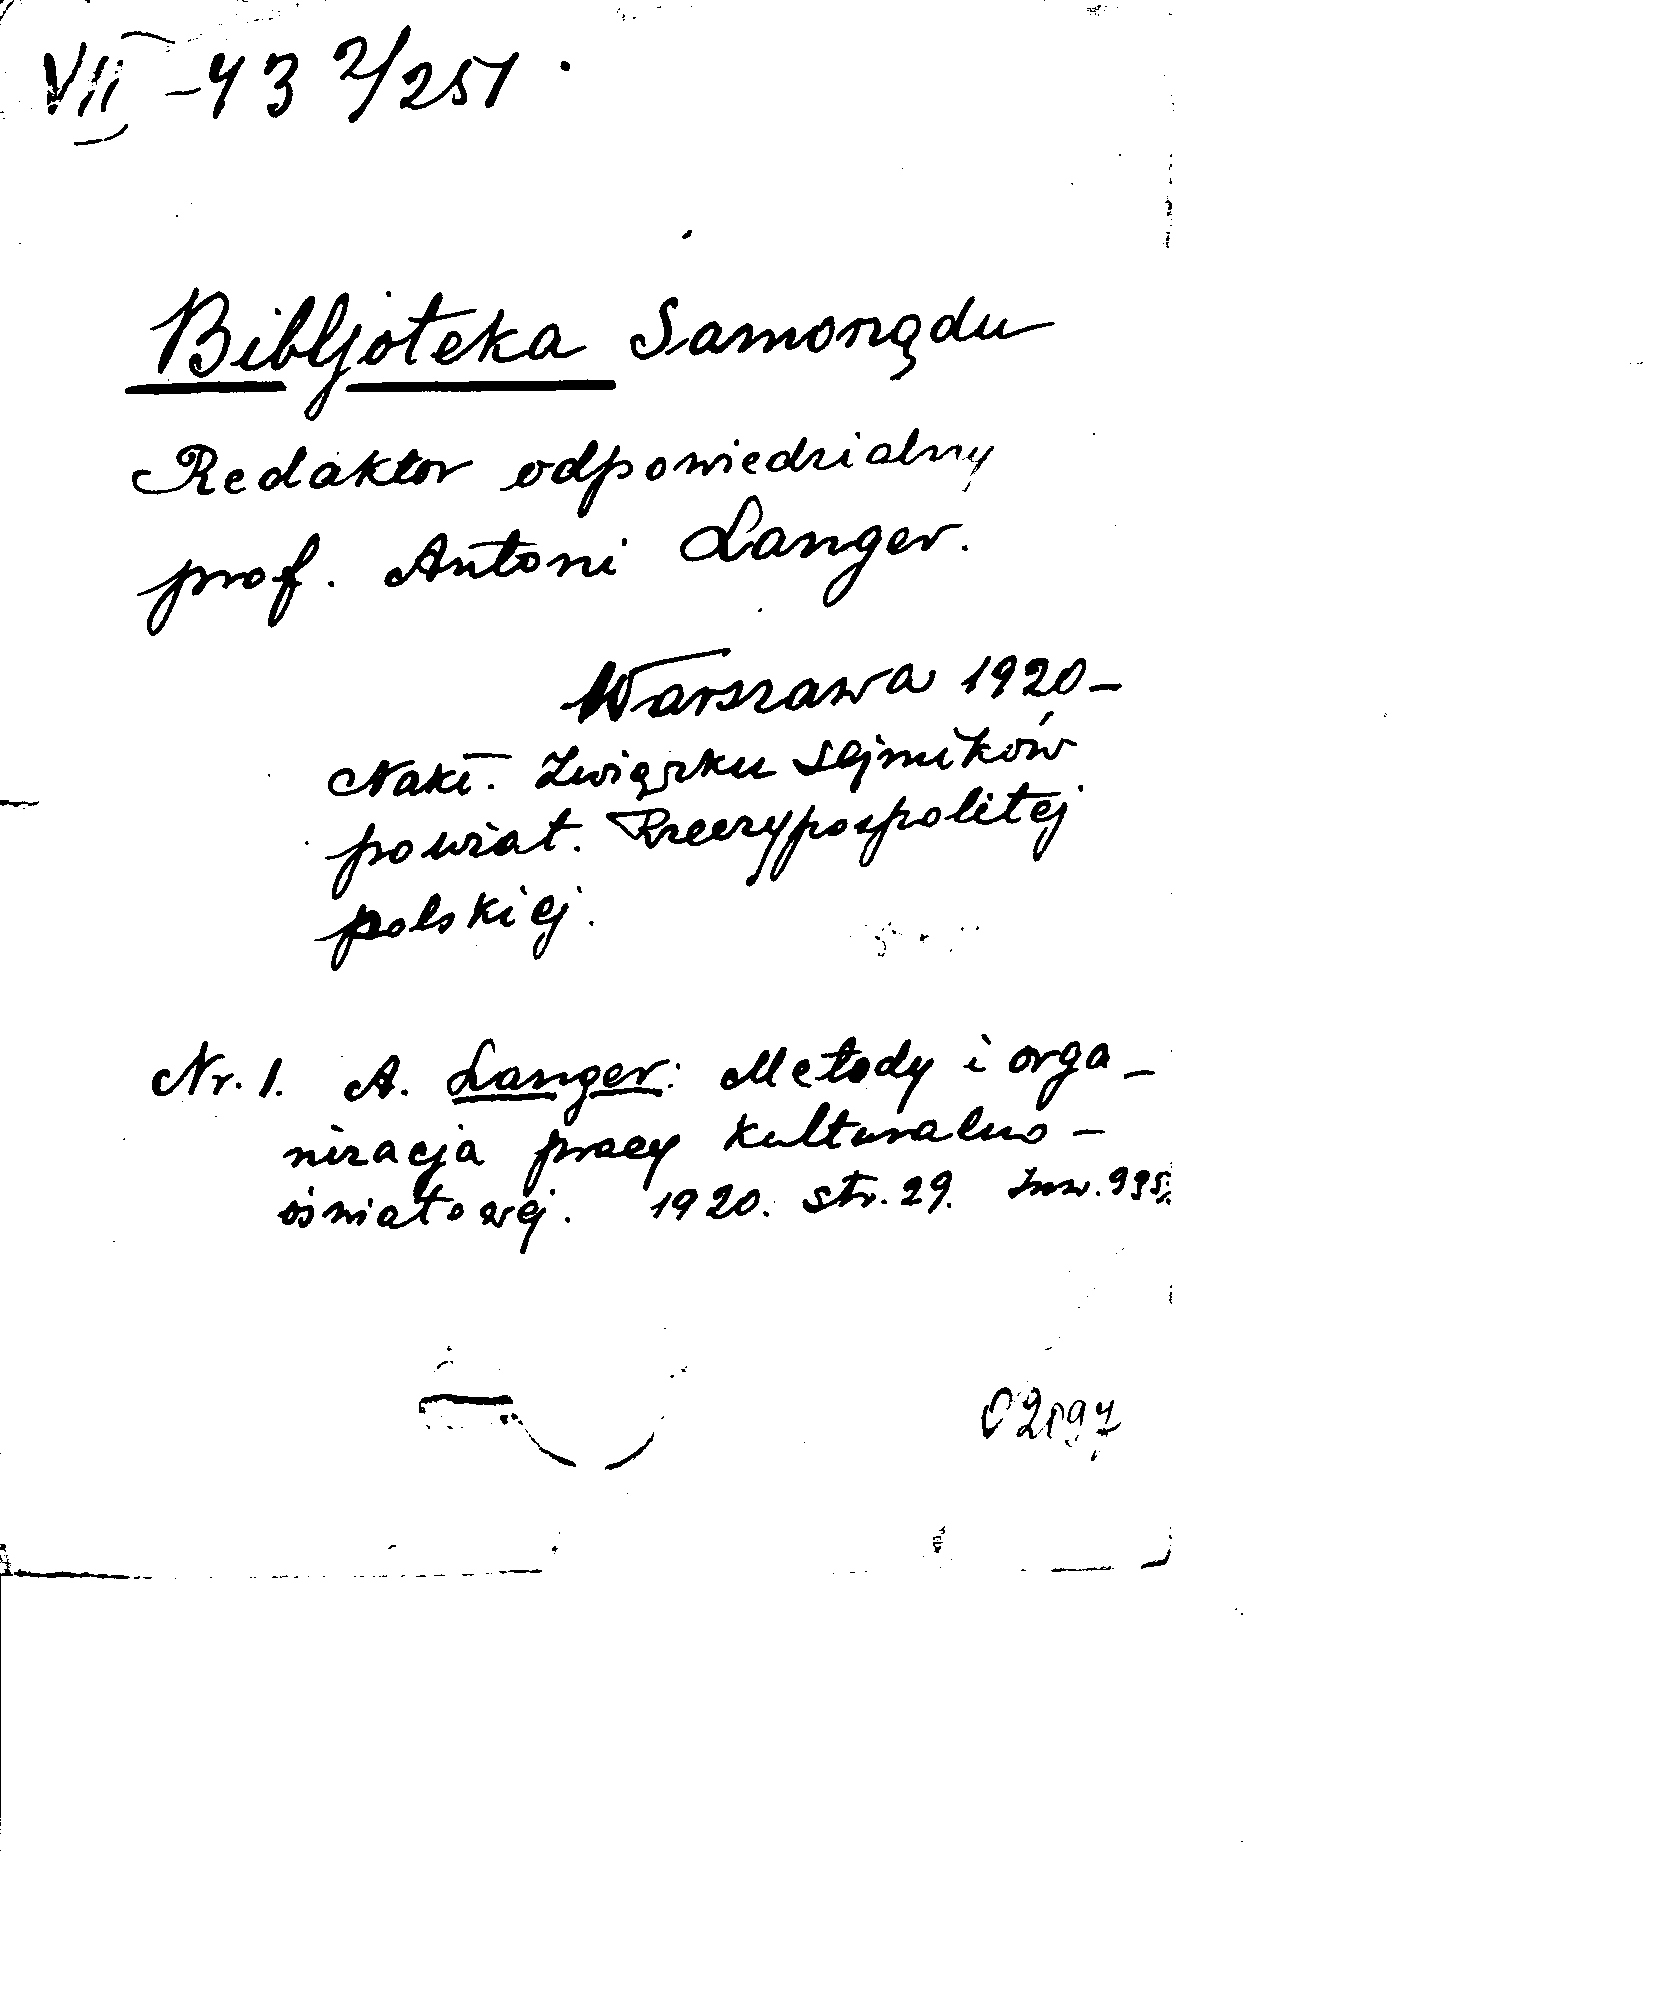 VII -43 2/251.
Bibljoteka Samorządu
Redaktor odpowiedzialny
prof. Antoni Langer.
Warszawa 1920-
Nakł. Związku Sejmików
powiat. Rzeczypospolitej
polskiej.
Nr. 1. A. Langer: Metody i orga-
nizacja pracy kulturalno-
oświatowej. 1920. str. 29. Inw. 995